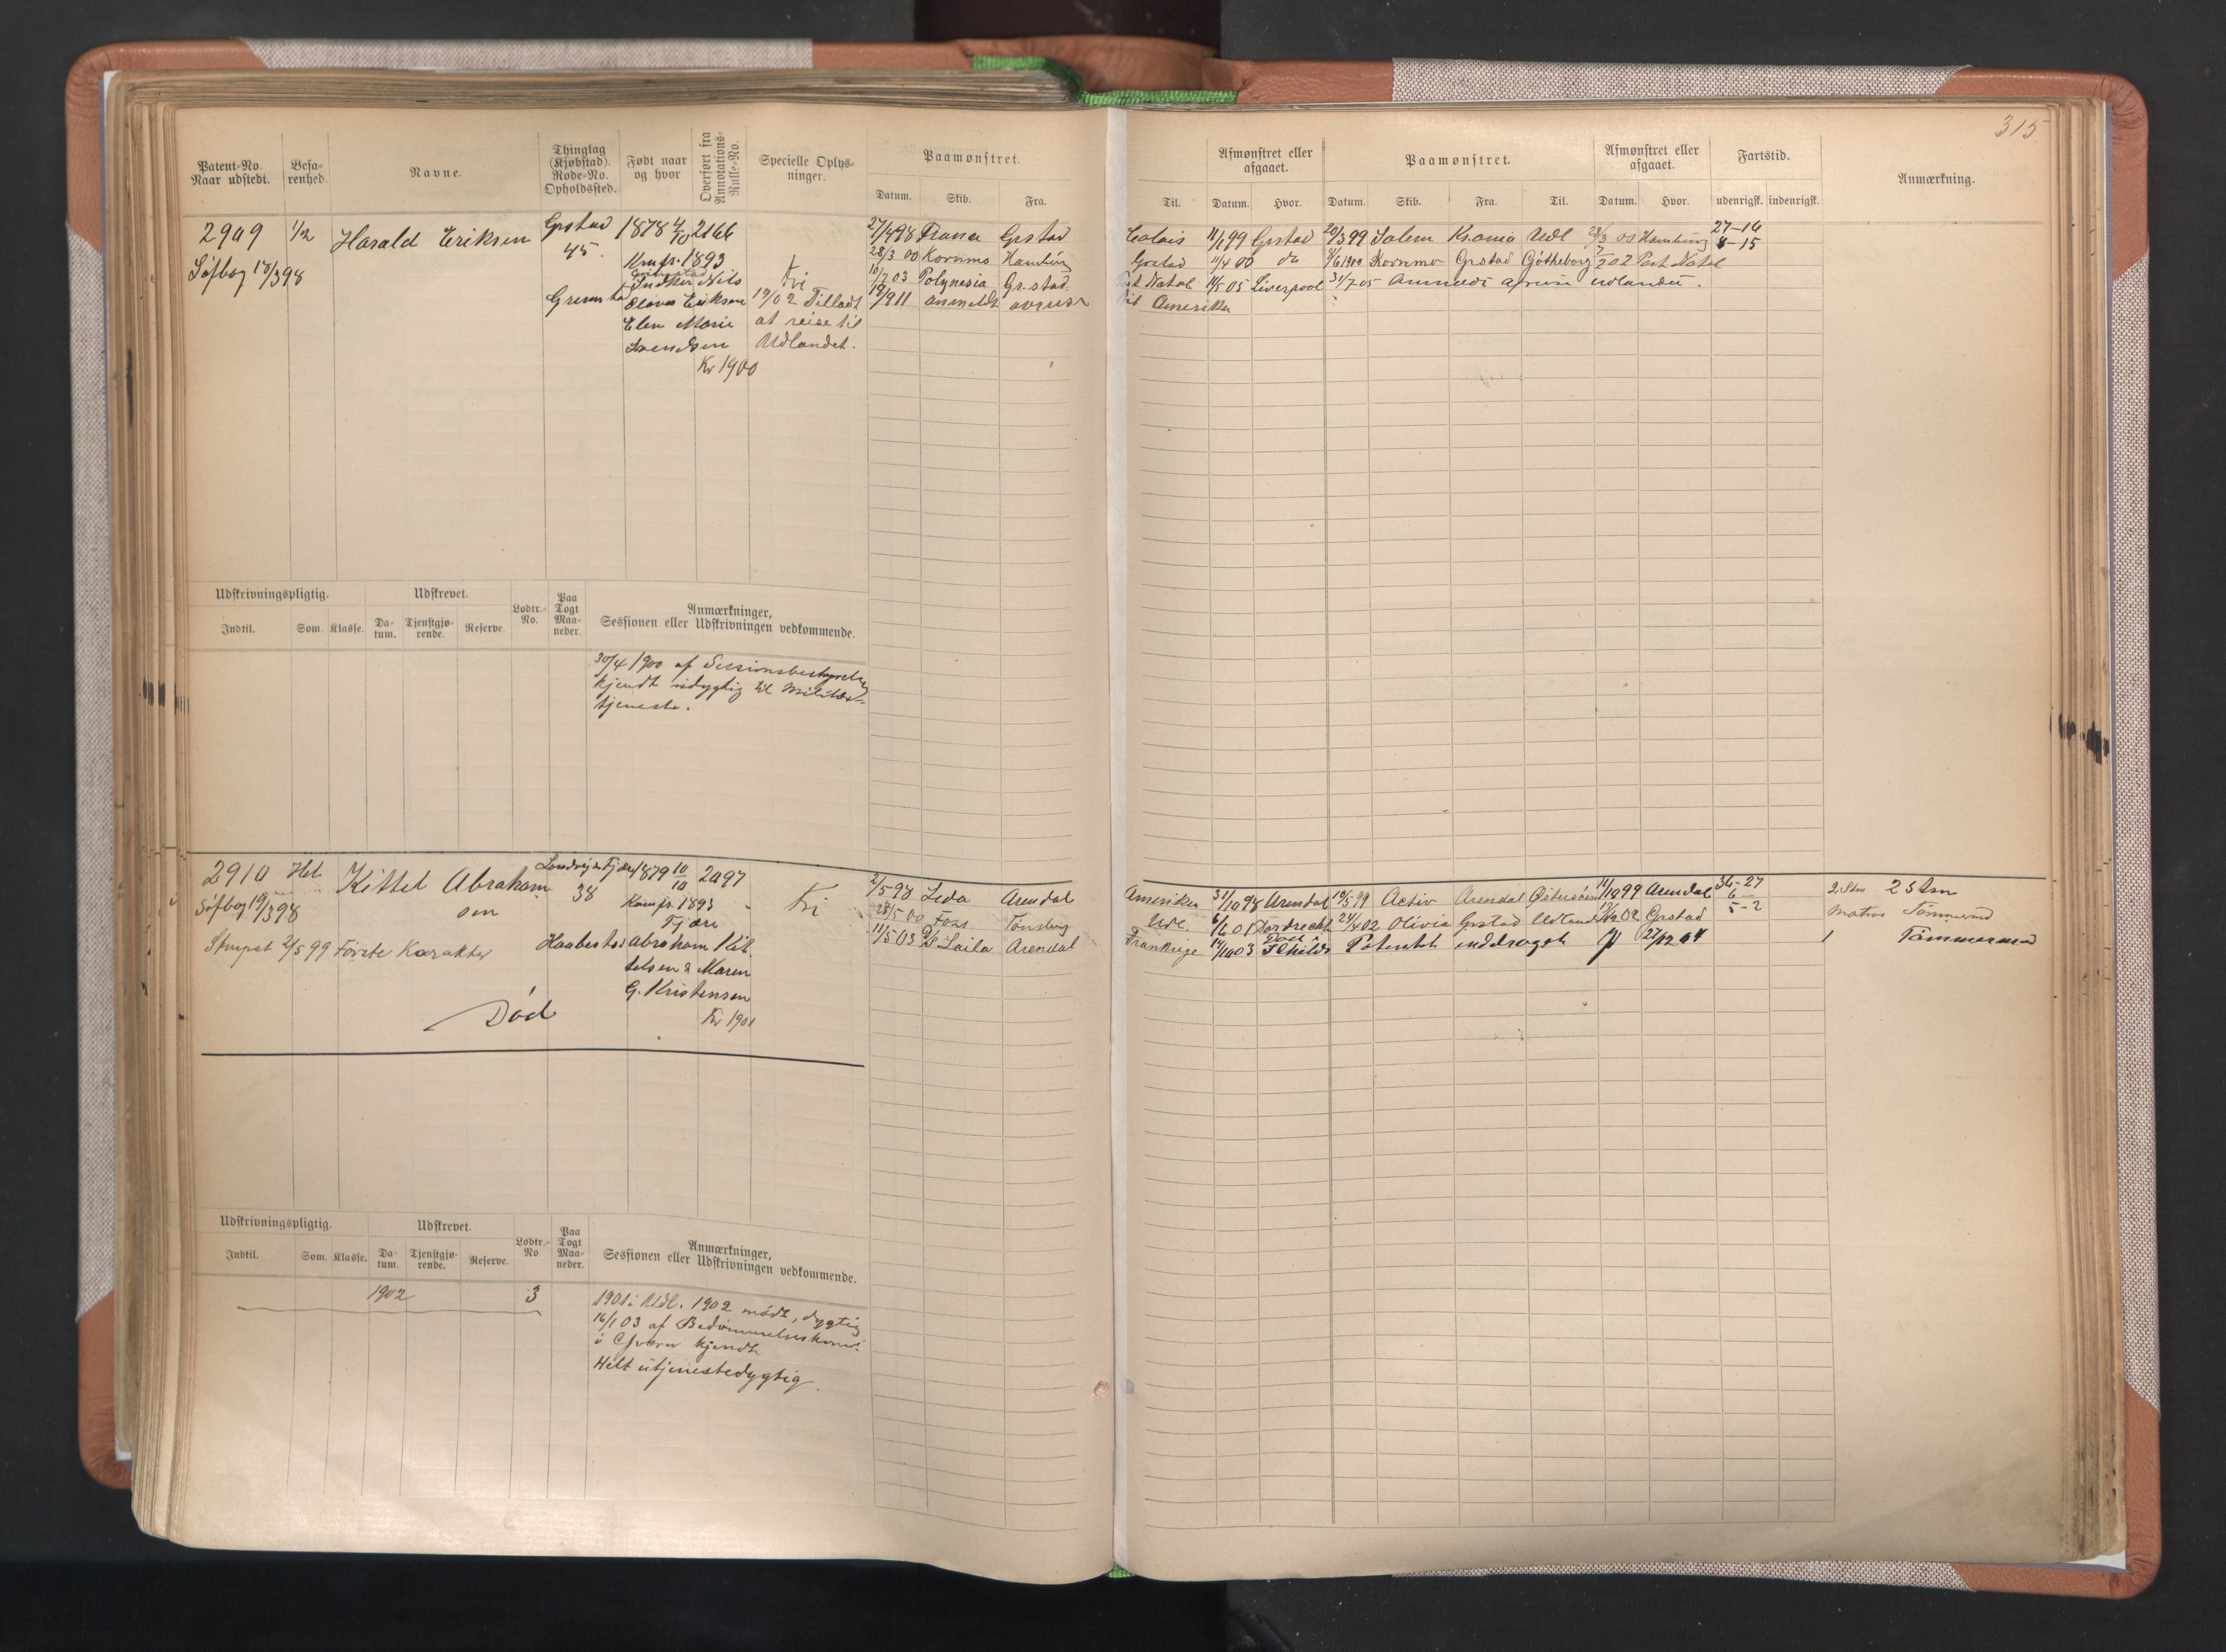 315
Patent-No. Naar udstedt.
Befa-renhed.
Navne.
Thinglag (Kjøbstad). Rode-No. Opholdssted.
Født naar og hvor
Overført fra Annotations-Rulle-No.
Specielle Oplys-ninger.
Paamønstret.
Datum. Skib. Fra.
Til.
Afmønstret eller afgaaet.
Datum. Hvor.
Paamønstret.
Datum. Skib. Fra. Til.
Afmønstret eller afgaaet.
Datum. Hvor.
Fartstid.
udenrigsk. indenrigsk.
Anmærkning.
2909 1/2 Harald Eriksen Grstad 1878 4/10 2166
Søfbog 18/3 98
45
Kmfr. 1893
Grimstad
Nils
Olaves Eriksen
Elen Marie
Svendsen
Kr 1900
Kr
19/02 Tilladt
at reise til
Udlandet.
27/4 98 Grstad Calais 11/1 99 Grstad 20/3 99 Salem Krania Udl 28/3 00 Hamburg 27-16
28/3 00 Kornmo Hamburg Grstad 11/4 00 do 1900 Kornmo Grstad Gøtheborg 02 Port Natal 8-15
10/7 03 Polynesia Gr.stad Port Natal 05 Liverpool 31/7 05 udlandet.
19/9 11 anmeldt avreist til Amerika
Udskrivningspligtig.
Indtil. Som. Klasse.
Udskrevet.
Da-tum. Tjenstgjø-rende. Reserve.
Lodtr.-No.
Paa Togt Maa-neder.
Anmærkninger, Sessionen eller Udskrivningen vedkommende.
30/4 1900 af Sessionsbestyrelsen
kjendt udygtig til Militær-
tjeneste.
2910 Hel Kittel Abraham
sen
Søfbog 19/3 98
38
1879 10/10 2097
Komfr. 1893
Fjære
Styrpat 2/5 99 Første Karakter
Abraham Kit
telsen & Maren
G. Kristensen
Kr 1901
Kr
Død
2/5 98 Leda Arendal Amerika 31/10 98 Arendal 19/5 99 Activ Arendal Østersøen 11/10 99 Arendal 36-27
28/5 00 Foss Tønsberg Udl. 6/6 01 Dordrecht 24/4 02 Olivia Grstad Udland 02 Grstad 5-2
11/5 03 Laila Arendal Frankrige 14/10 03 Patentet inddraget 27/12 04
2 Stm 2 Stm
Matros Tømmermd
1 Tømmermd
Udskrivningspligtig.
Indtil. Som. Klasse.
Udskrevet.
Da-tum. Tjenstgjø-rende. Reserve.
Lodtr.-No
Paa Togt Maa-neder.
Anmærkninger, Sessionen eller Udskrivningen vedkommende.
1902 3
1901 i Udl. 1902 mødt, dygtig
16/1 03 af Bedømmelseskom.
kjendt
Helt utjenestedygtig.